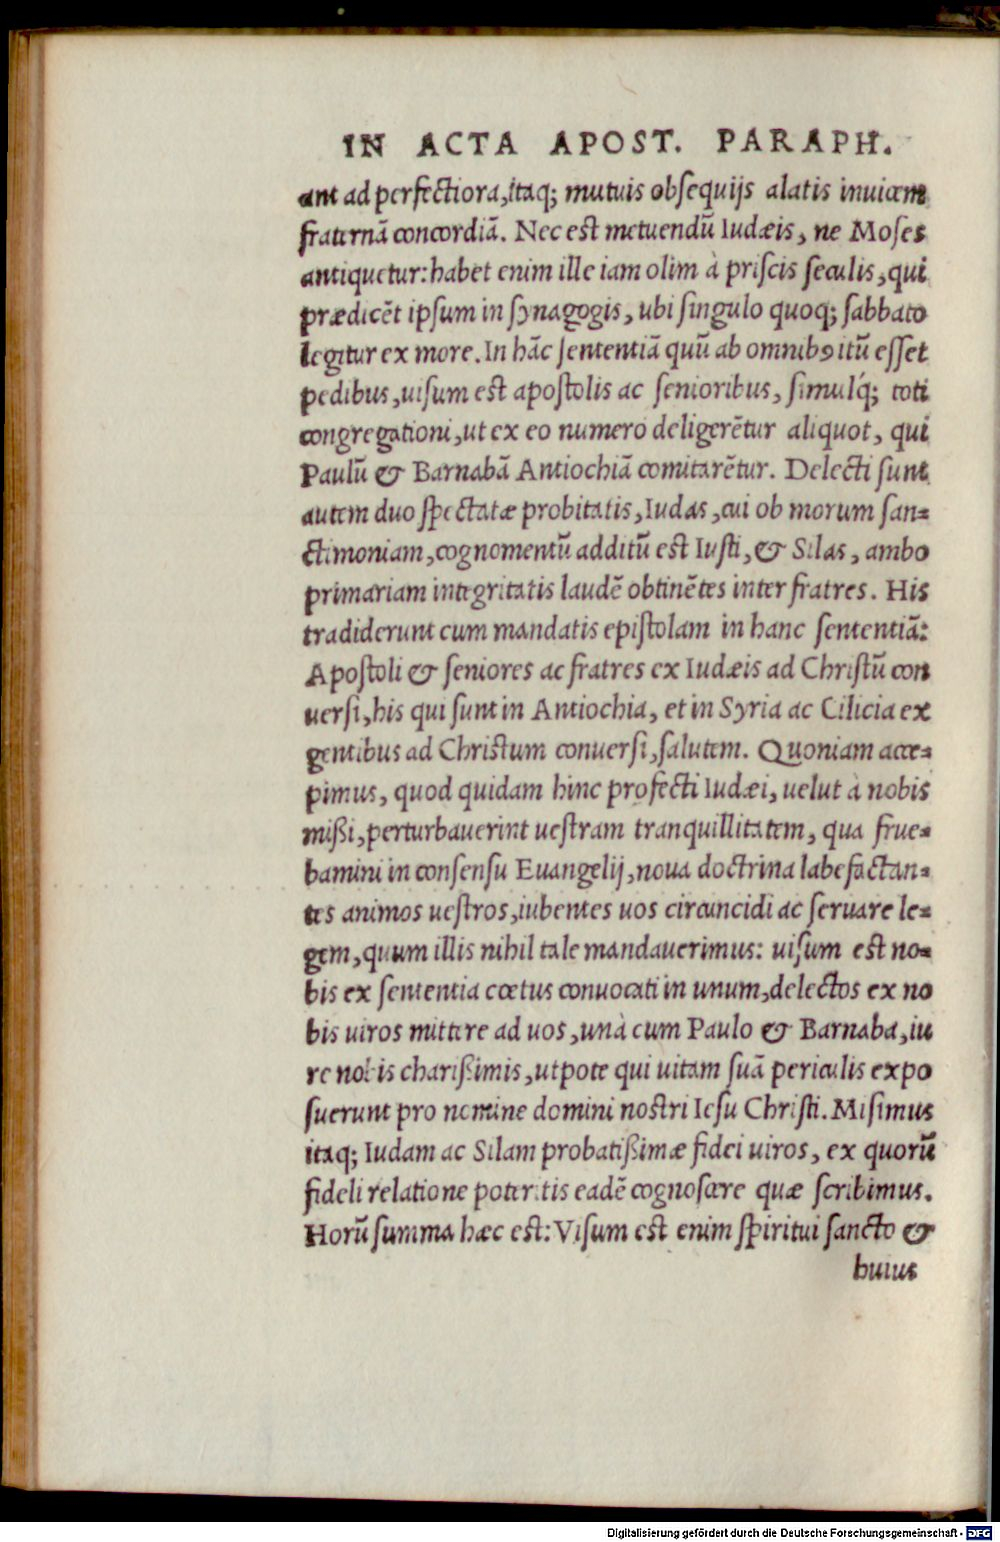 IN ACTA APOST. PARAPH.
ant ad perfectiora, itaq; mutuis obsequijs alatis inuicem
fraternā concordiā. Nec est metuendū Iudæis, ne Moses
antiquetur: habet enim ille iam olim à priscis seculis, qui
prædicēt ipsum in synagogis, ubi singulo quoq; sabbato
legitur ex more. In hāc sententiā quū ab omnibꝰ itū esset
pedibus, uisum est apostolis ac senioribus, simulq́; toti
congregationi, ut ex eo numero deligerētur aliquot, qui
Paulū & Barnabā Antiochiā comitarētur. Delecti sunt
autem duo spectatæ probitatis, Iudas, cui ob morum san=
ctimoniam, cognomentū additū est Iusti, & Silas, ambo
primariam integritatis laudē obtinētes inter fratres. His
tradiderunt cum mandatis epistolam in hanc sententiā:
Apostoli & seniores ac fratres ex Iudæis ad Christū con
uersi, his qui sunt in Antiochia, et in Syria ac Cilicia ex
gentibus ad Christum conuersi, salutem. Quoniam acce=
pimus, quod quidam hinc profecti Iudæi, uelut à nobis
mißi, perturbauerint uestram tranquillitatem, qua frue=
bamini in consensu Euangelij, noua doctrina labefactan=
tes animos uestros, iubentes uos circuncidi ac seruare le=
gem, quum illis nihil tale mandauerimus: uisum est no=
bis ex sententia cœtus conuocati in unum, delectos ex no
bis uiros mittere ad uos, unà cum Paulo & Barnaba, iu
re nobis charißimis, utpote qui uitam suā periculis expo
suerunt pro nomine domini nostri Iesu Christi. Misimus
itaq; Iudam ac Silam probatißimæ fidei uiros, ex quorū
fideli relatione poteritis eadē cognoscere quæ scribimus.
Horū summa hæc est: Visum est enim spiritui sancto &
huius
Digitalisierung gefördert durch die Deutsche Forschungsgemeinschaft - DFG